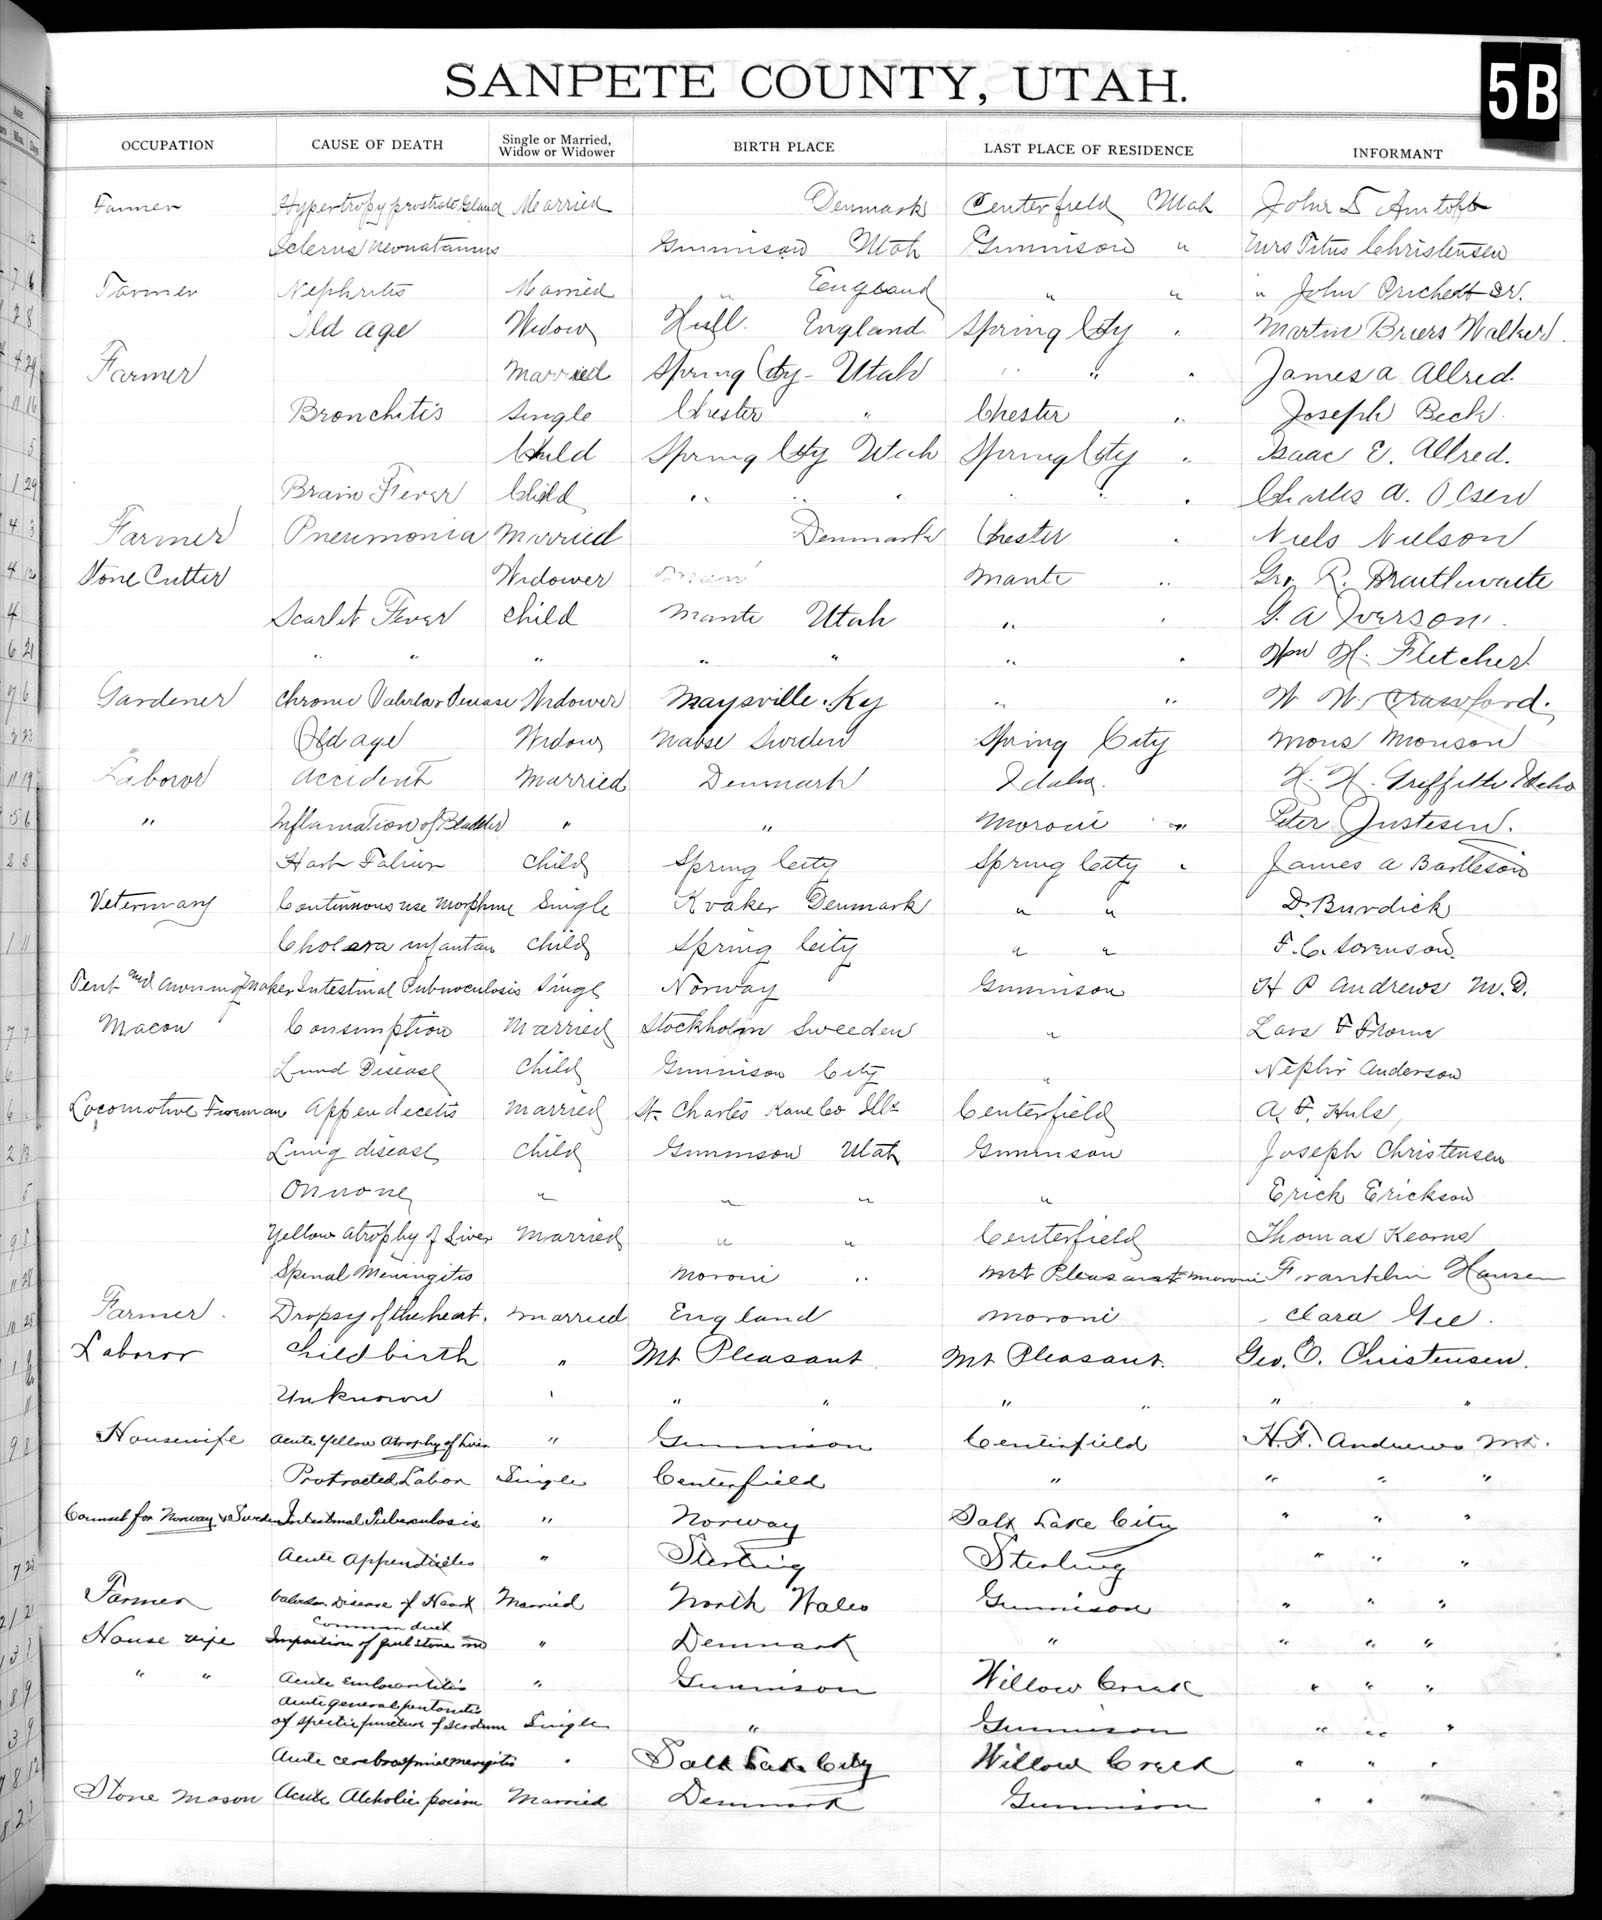 SANPETE COUNTY, UTAH.
5B
OCCUPATION CAUSE OF DEATH Single or Married, Widow or Widower BIRTH PLACE LAST PLACE OF RESIDENCE INFORMANT
Farmer Hypertropy prostrate Gland Married Denmark Centerfield Utah John
Neonatamus Gunnison Utah Gunnison " Mrs Titus Christensen
Farmer Nephritis Married " England " " " John Prichett Sr.
Old age Widow Hull England Spring City " Martin Briers Walker
Farmer Married Spring City Utah " " " James A Allred.
Bronchitis Single Chester " Chester " Joseph Beck.
Child Spring City Utah Spring City " Isaac E. Allred.
Brain Fever Child " " " " " " Charles A. Olsen
Farmer Pneumonia Married Denmark Chester " Niels Nielson
Stone Cutter Widower Manti " Geo R. Braithwaite
Scarlet Fever Child Manti Utah " " G. A Iverson.
" " " " " " " Wm H. Fletcher
Gardener Chronic Valvular Disease Widower Maysville. Ky " " W W Crawford.
Old age Widow Sweden Spring City Mons Monson
Laborer Accident Married Denmark Idaho. H. H. Griffith Idaho
" Inflamation of Bladder " " Moroni " Peter Justesen.
Hart Faliur Child Spring City Spring City " James A Bartleson
Veterinary Continuous use Morphine Single Kvaker Denmark " " D. Burdick
Cholera infantum Child Spring City " " F. C. Sorenson
Tent and Awning Maker Intestinal Tuburculosis Singl Norway Gunnison H P Andrews M.D.
Macon Consumption Married Stockholm Sweeden " Lars F
Lund Disease Child Gunnison City " Nephi Anderson
Locomotive Fireman Appendecetis Married St. Charles Kane Co Ills Centerfield A. F. Huls
Lung disease Child Gunnison Utah Gunnison Joseph Christensen
" " " " Erick Erickson
Yellow Atrophy of Liver Married " " Centerfield Thomas Kearns
Spinal Meningitis Moroni " Mt Pleasant Moroni Franklin Hansen
Farmer. Dropsy of the heart. Married England Moroni Clara Gee.
Laborer Childbirth " Mt Pleasant Mt Pleasant. Geo. O. Christensen.
Unknown " " " " " " "
Housewife Acute Yellow Atrophy of Liver " Gunnison Centerfield H. P. Andrews MD.
Protracted Labor Single Centerfield " " " "
Counsel for Norway & Sweden Intestinal Tuberculosis " Norway Salt Lake City " " "
Acute Appendicites " Sterling Sterling " " "
Farmer Valvular Disease of Heart Married North Wales Gunnison " " "
House wife Impaction of gall stone in common duct " Denmark " " " "
" " Acute " Gunnison Willow Creek " " "
Acute general
of Single " Gunnison " " "
Acute cerebrospinal Mengitis " Salt Lake City Willow Creek " " "
Stone Mason Acute Alcholic poison Married Denmark Gunnison " " "